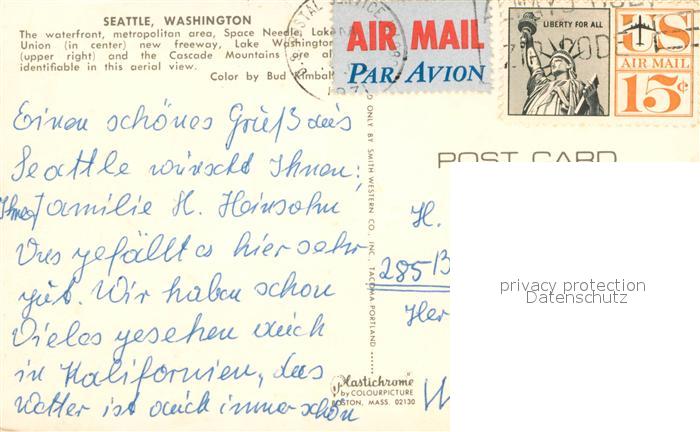 SEATTLE, WASHINGTON
The waterfront, metropolitan area, Space Needle, Lake
Union (in center) new freeway, Lake Washington
(upper right) and the Cascade Mountains are al
identifiable in this aerial view.
Color by Bud Kimbal
AIR MAIL
PAR AVION
LIBERTY FOR ALL
US
AIR MAIL
15¢
POST CARD
Einen schönes Grieß aus
Seattle wünscht Ihnen;
Familie H. Heinsohn
Uns gefällt es hier sehr
gut. Wir haben schon
Vieles gesehen auch
in Kalifornien, das
Wetter ist auch immer schön
D ONLY BY SMITH WESTERN CO., INC., TACOMA-PORTLAND
H.
285B
Her
privacy protection
Datenschutz
Plastichrome
by COLOURPICTURE
BOSTON, MASS. 02130